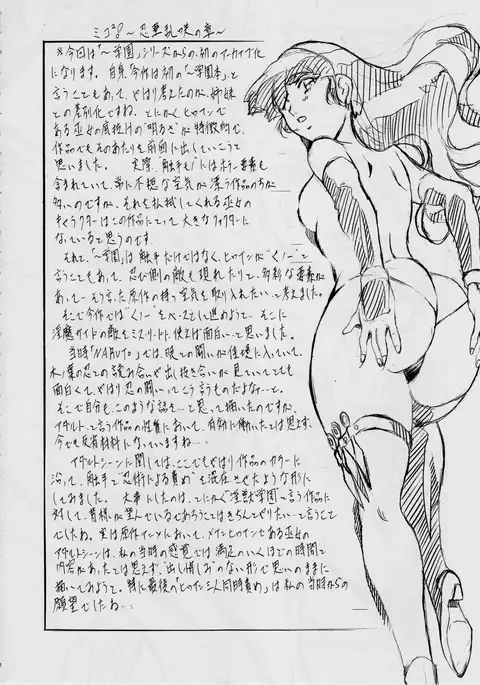 ミコ28〜忍華乱咲の章〜
※今回は「〜学園」シリーズからの、初のアーカイブ化
になります。自身、今作は初の「〜学園本」と
言うこともあって、やはり考えたのが、姉妹
との差別化ですね。とにかく、ヒロインで
ある巫女の底抜けの"明るさ"が特徴的で、
作品でもそのあたりを前面に出していこうと
思いました。 実際、「触手モノ」にはホラー要素も
含まれていて、常に不穏な空気が漂う作品の方が
多いのですが、それを払拭してくれる巫女の
キャラクターはこの作品にとって大きなファクターに
なっていると思うのです。
それと、「〜学園」は触手だけではなく、ヒロインが"くノ一"と
言うこともあって、忍び側の敵も現れたりして、多彩な要素が
あって…そう言った原作の持つ空気を取り入れたいって考えました。
そこで今作では"くノ一"をベースとして進めようて、そこに
淫魔サイドの敵をミスリードに使えば面白い…と思いました。
当時「NARUTO」では、暁との闘いが佳境に入っていて、
木ノ葉の忍との読み合いや出し抜き合いが見ていてとても
面白くて、やはり忍の闘いってこう言うものだよな…と。
そこで自分も、このような話を…と思って描いたのですが、
アダルトって言う作品の性質において、有効に働いたとは思えず、
今でも反省材料になっていますね…
アダルトシーンに関しては、ここでもやはり作品のカラーに
沿って、触手と"忍術による責め"を混在させたような形に
してみました。 大事にしたのは、とにかく"淫獣学園"って言う作品に
対して、皆様が望んでいるであろうことはきちんとやりたい…と言うこと
でしたね。実は原作インンにおいて、メインヒロインである巫女の
アダルトシーンは、私の当時の感覚では満足のいくほどの時間と
内容があったとは思えず、出し惜しみのない形で思いのままに
描いてみようて。特に最後の「ヒロイン三人同時責め」は私の当時からの
願望でしたね…